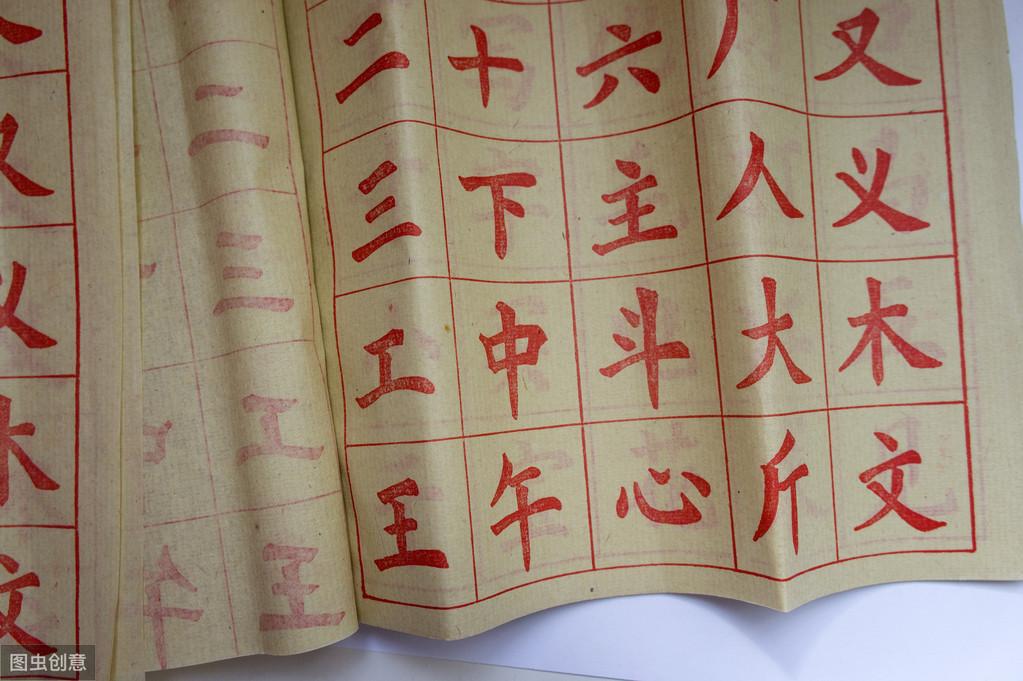 文
午
二三工王
二三工王
十下中午
六主斗心
人大斤
又义木文
图虫创意